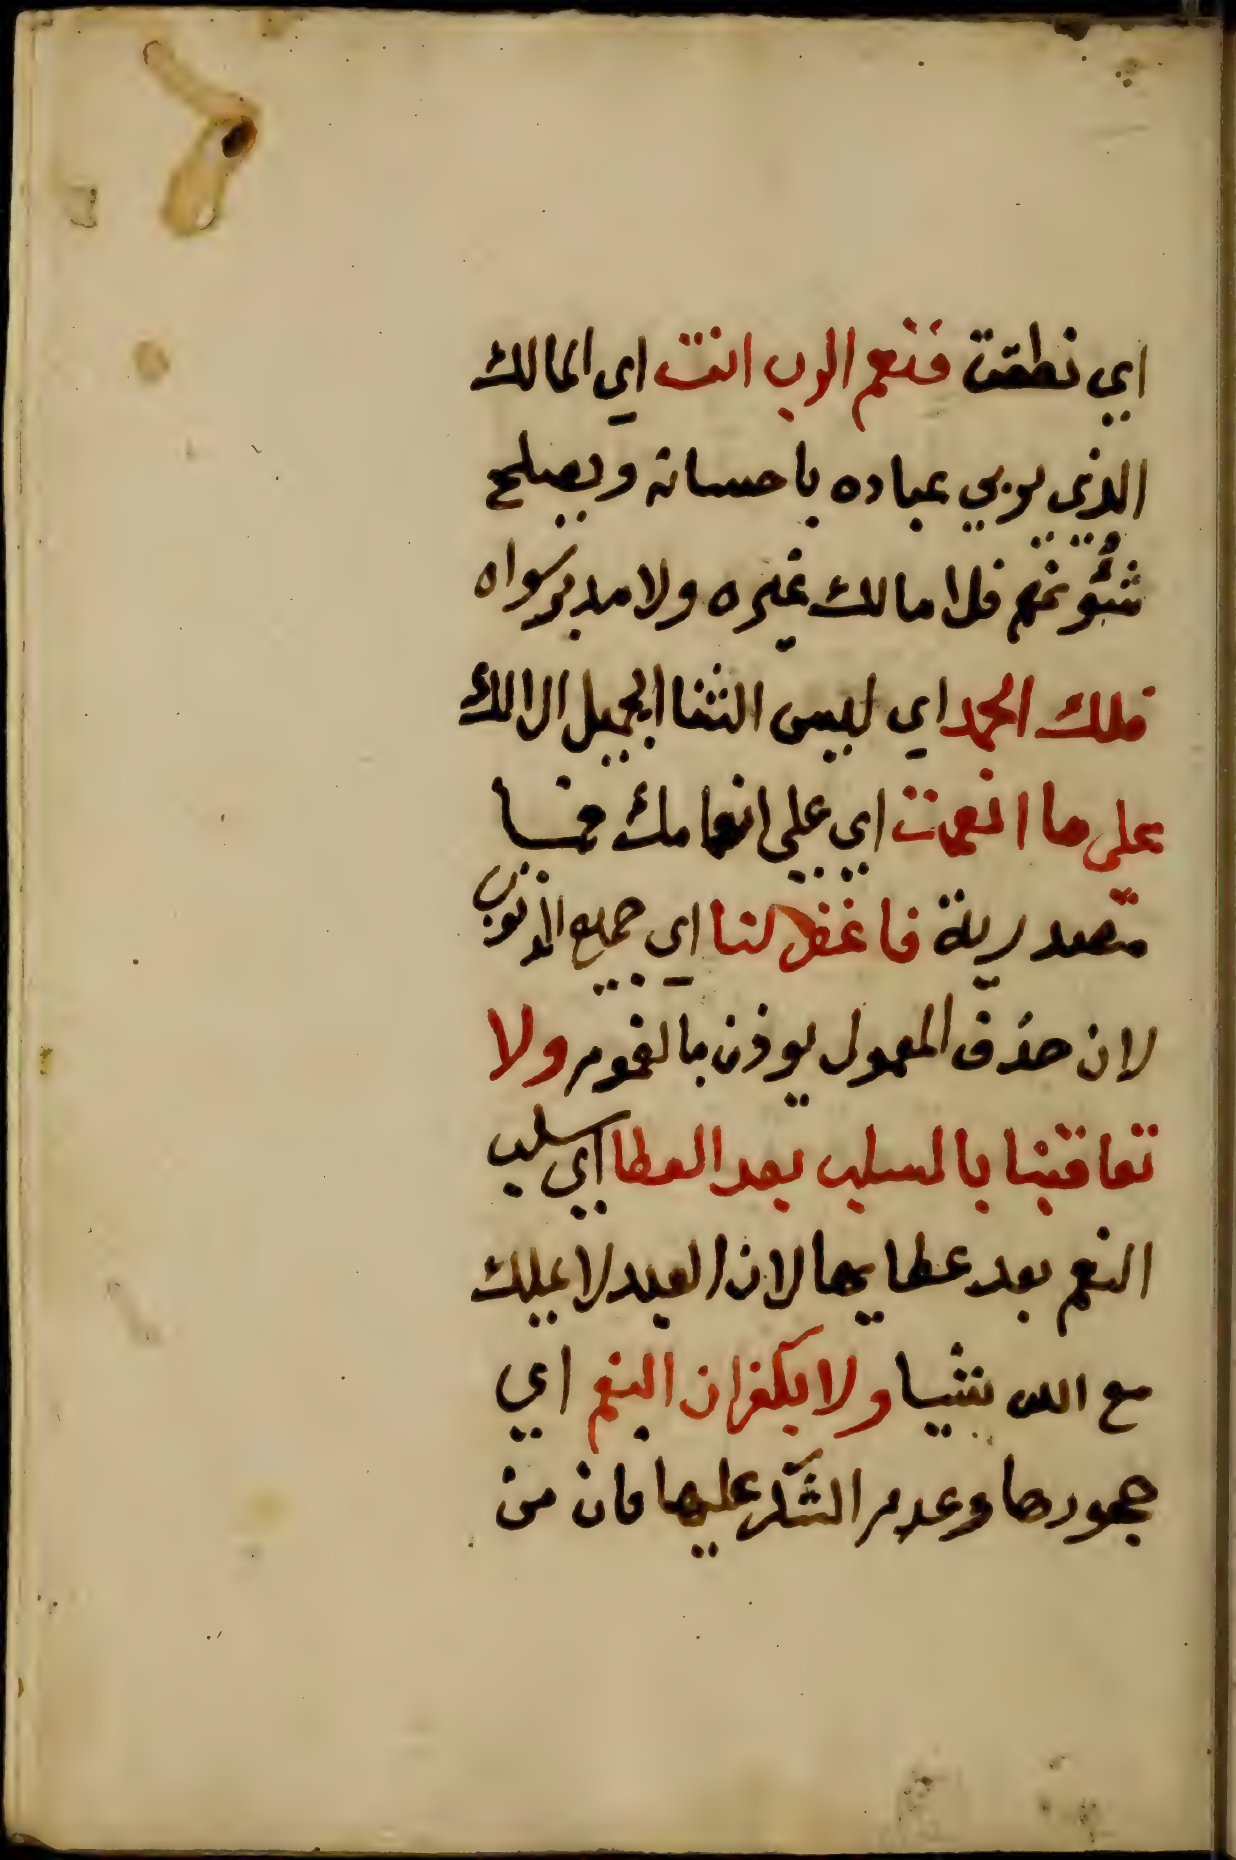 اي نطقت فنعم الرب انت اي المالك
الذي يربي عباده باحسانه ويصلح
شئونهم فلا مالك غيره ولا مدبر سواه
فلك الحمد اي ليس الثنا الجميل الا لك
على ما انعمت اي على انعامك فما
مصدرية فاغفر لنا اي جميع الذنوب
لان حذف المعمول يوذن بالعموم ولا
تعاقبنا بالسلب بعد العطا اي سلب
النعم بعد عطايها لان العبد لا يملك
مع الله شيا ولا بكفران النعم اي
جحودها وعدم الشكر عليها فان من